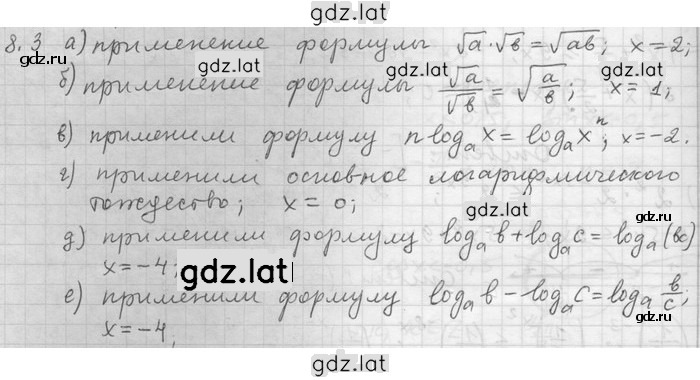 gdz.lat
8.3 а) применение формулы √a·√в = √aв; x=2;
gdz.lat gdz.lat gdz.lat
б) применение формулы √a/√в = √(a/в); x=1;
в) применили формулу n log_a x = log_a x^n; x=-2.
г) применили основное логарифмического
gdz.lat gdz.lat
тождество; x=0;
д) применили формулу log_a в + log_a c = log_a (вc)
x=-4;
gdz.lat
е) применили формулу log_a в - log_a c = log_a в/c;
x=-4;
gdz.lat